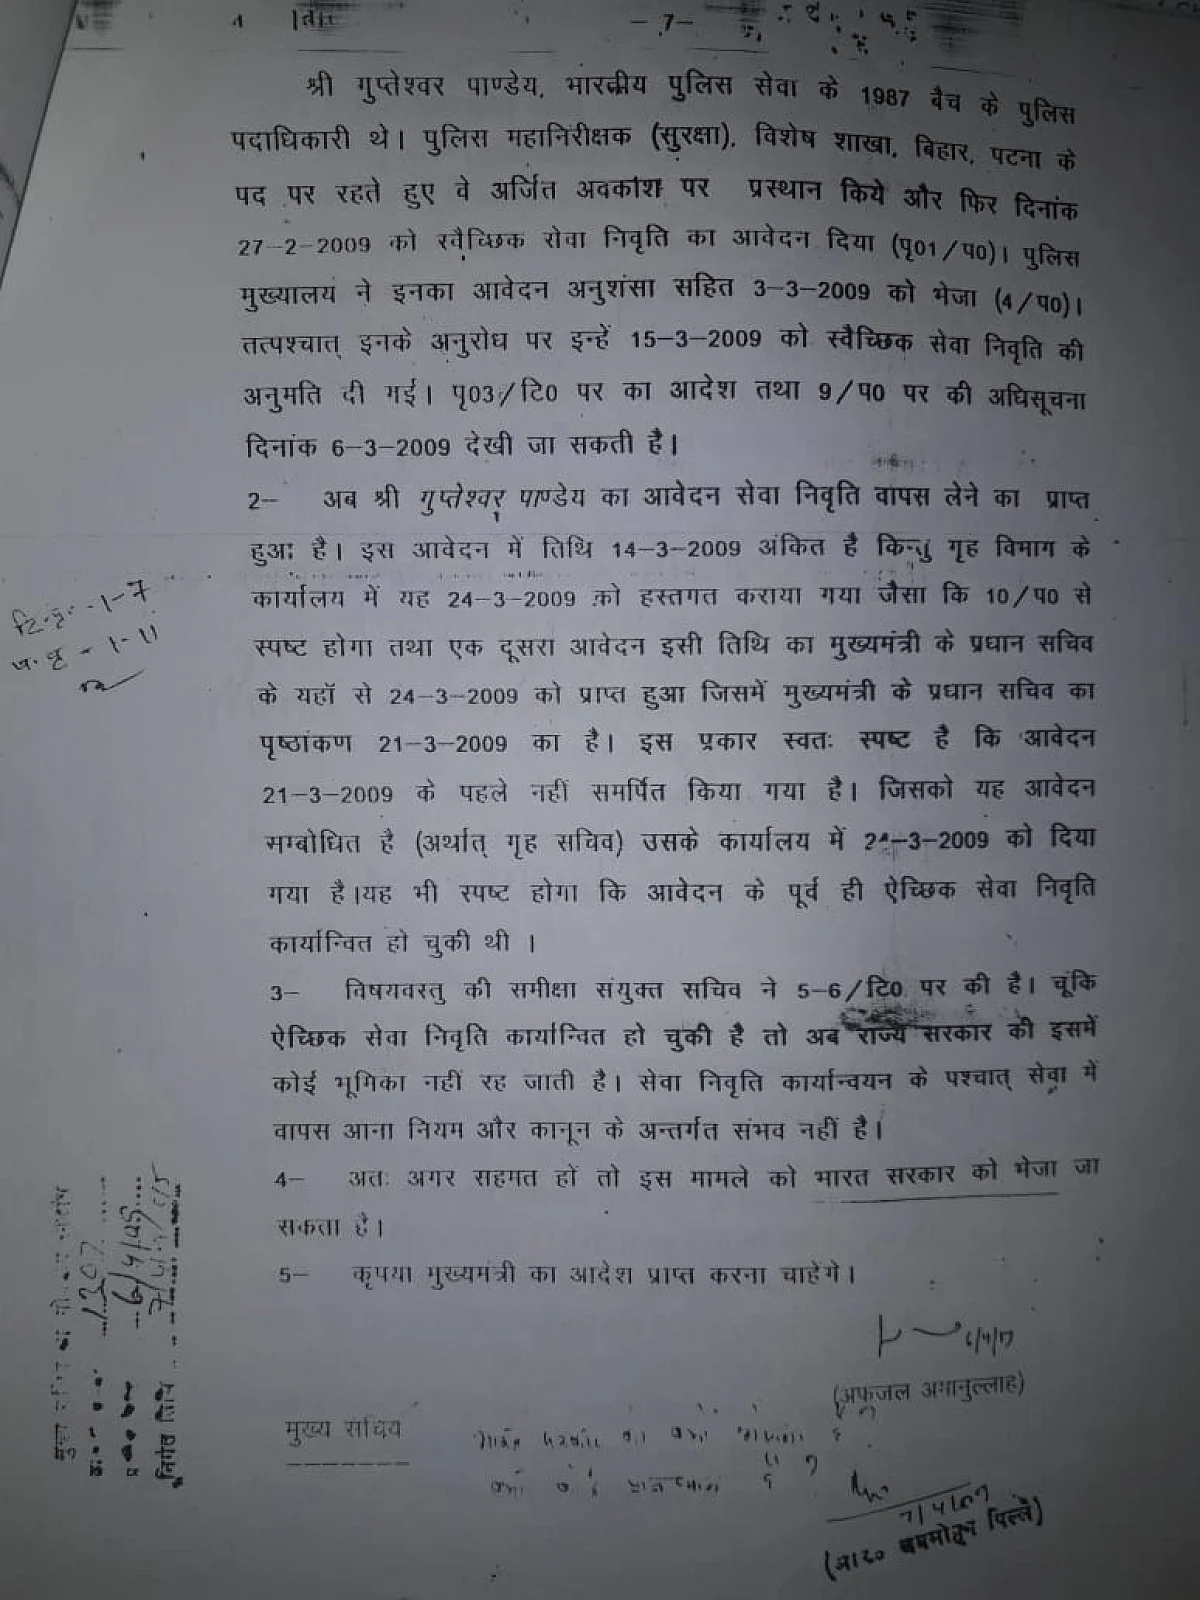 –7–
श्री गुप्तेश्वर पाण्डेय, भारतीय पुलिस सेवा के 1987 बैच के पुलिस
पदाधिकारी थे। पुलिस महानिरीक्षक (सुरक्षा), विशेष शाखा, बिहार, पटना के
पद पर रहते हुए वे अर्जित अवकाश पर प्रस्थान किये और फिर दिनांक
27–2–2009 को स्वैच्छिक सेवा निवृति का आवेदन दिया (पृ01/प0)। पुलिस
मुख्यालय ने इनका आवेदन अनुशंसा सहित 3–3–2009 को भेजा (4/प0)।
तत्पश्चात् इनके अनुरोध पर इन्हें 15–3–2009 को स्वैच्छिक सेवा निवृति की
अनुमति दी गई। पृ03/टि0 पर का आदेश तथा 9/प0 पर की अधिसूचना
दिनांक 6–3–2009 देखी जा सकती है।
2– अब श्री गुप्तेश्वर पाण्डेय का आवेदन सेवा निवृति वापस लेने का प्राप्त
हुआ है। इस आवेदन में तिथि 14–3–2009 अंकित है किन्तु गृह विभाग के
कार्यालय में यह 24–3–2009 को हस्तगत कराया गया जैसा कि 10/प0 से
स्पष्ट होगा तथा एक दूसरा आवेदन इसी तिथि का मुख्यमंत्री के प्रधान सचिव
के यहॉ से 24–3–2009 को प्राप्त हुआ जिसमें मुख्यमंत्री के प्रधान सचिव का
पृष्ठांकण 21–3–2009 का है। इस प्रकार स्वतः स्पष्ट है कि आवेदन
21–3–2009 के पहले नहीं समर्पित किया गया है। जिसको यह आवेदन
सम्बोधित है (अर्थात् गृह सचिव) उसके कार्यालय में 24–3–2009 को दिया
गया है।यह भी स्पष्ट होगा कि आवेदन के पूर्व ही ऐच्छिक सेवा निवृति
कार्यान्वित हो चुकी थी ।
टि.पृ.-1-7
प.पृ-1-11
3– विषयवस्तु की समीक्षा संयुक्त सचिव ने 5–6/टि0 पर की है। चूंकि
ऐच्छिक सेवा निवृति कार्यान्वित हो चुकी है तो अब राज्य सरकार की इसमें
कोई भूमिका नहीं रह जाती है। सेवा निवृति कार्यान्वयन के पश्चात् सेवा में
वापस आना नियम और कानून के अन्तर्गत संभव नहीं है।
4– अतः अगर सहमत हों तो इस मामले को भारत सरकार को भेजा जा
सकता है।
5– कृपया मुख्यमंत्री का आदेश प्राप्त करना चाहेंगे।
(अफजल अमानुल्लाह)
मुख्य सचिव
7/4/09
(आर0 पिल्लै)
1307
तिथि